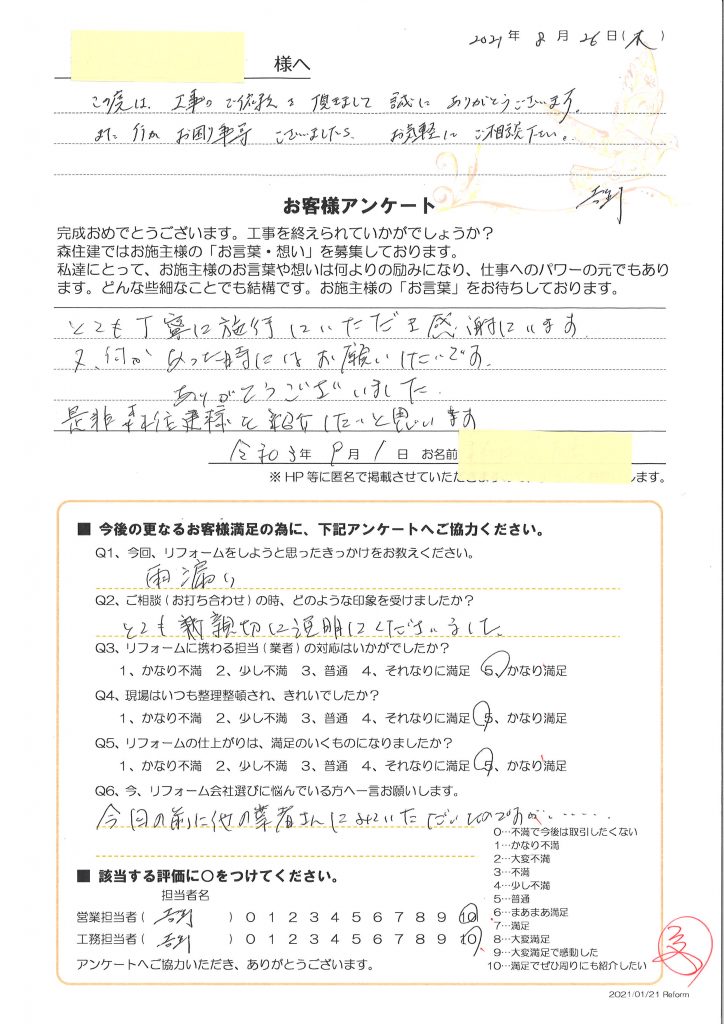 2021年 8月 26日(木)
様へ
この度は、工事のご依頼を頂きまして誠にありがとうございます。
また何かお困り事等ございましたら、お気軽にご相談下さい。
お客様アンケート
完成おめでとうございます。工事を終えられていかがでしょうか？
森住建ではお施主様の「お言葉・想い」を募集しております。
私達にとって、お施主様のお言葉や想いは何よりの励みになり、仕事へのパワーの元でもあり
ます。どんな些細なことでも結構です。お施主様の「お言葉」をお待ちしております。
とても丁寧に施行していただき感謝しています
又、何かあった時にはお願いしたいです。
ありがとうございました。
是非森住建様を紹介したいと思います
令和3年 9月 1日 お名前
※HP等に匿名で掲載させていただきます
します。
■ 今後の更なるお客様満足の為に、下記アンケートへご協力ください。
Q1、今回、リフォームをしようと思ったきっかけをお教えください。
雨漏り
Q2、ご相談(お打ち合わせ)の時、どのような印象を受けましたか？
とても親切に説明してくださいました。
Q3、リフォームに携わる担当(業者)の対応はいかがでしたか？
1、かなり不満 2、少し不満 3、普通 4、それなりに満足 5、かなり満足
Q4、現場はいつも整理整頓され、きれいでしたか？
1、かなり不満 2、少し不満 3、普通 4、それなりに満足 5、かなり満足
Q5、リフォームの仕上がりは、満足のいくものになりましたか？
1、かなり不満 2、少し不満 3、普通 4、それなりに満足 5、かなり満足
Q6、今、リフォーム会社選びに悩んでいる方へ一言お願いします。
今回の前に他の業者さんにみていただいたのですが……
■ 該当する評価に〇をつけてください。
担当者名
営業担当者( ) 0 1 2 3 4 5 6 7 8 9 10
工務担当者( ) 0 1 2 3 4 5 6 7 8 9 10
アンケートへご協力いただき、ありがとうございます。
0…不満で今後は取引したくない
1…かなり不満
2…大変不満
3…不満
4…少し不満
5…普通
6…まあまあ満足
7…満足
8…大変満足
9…大変満足で感動した
10…満足でぜひ周りにも紹介したい
2021/01/21 Reform